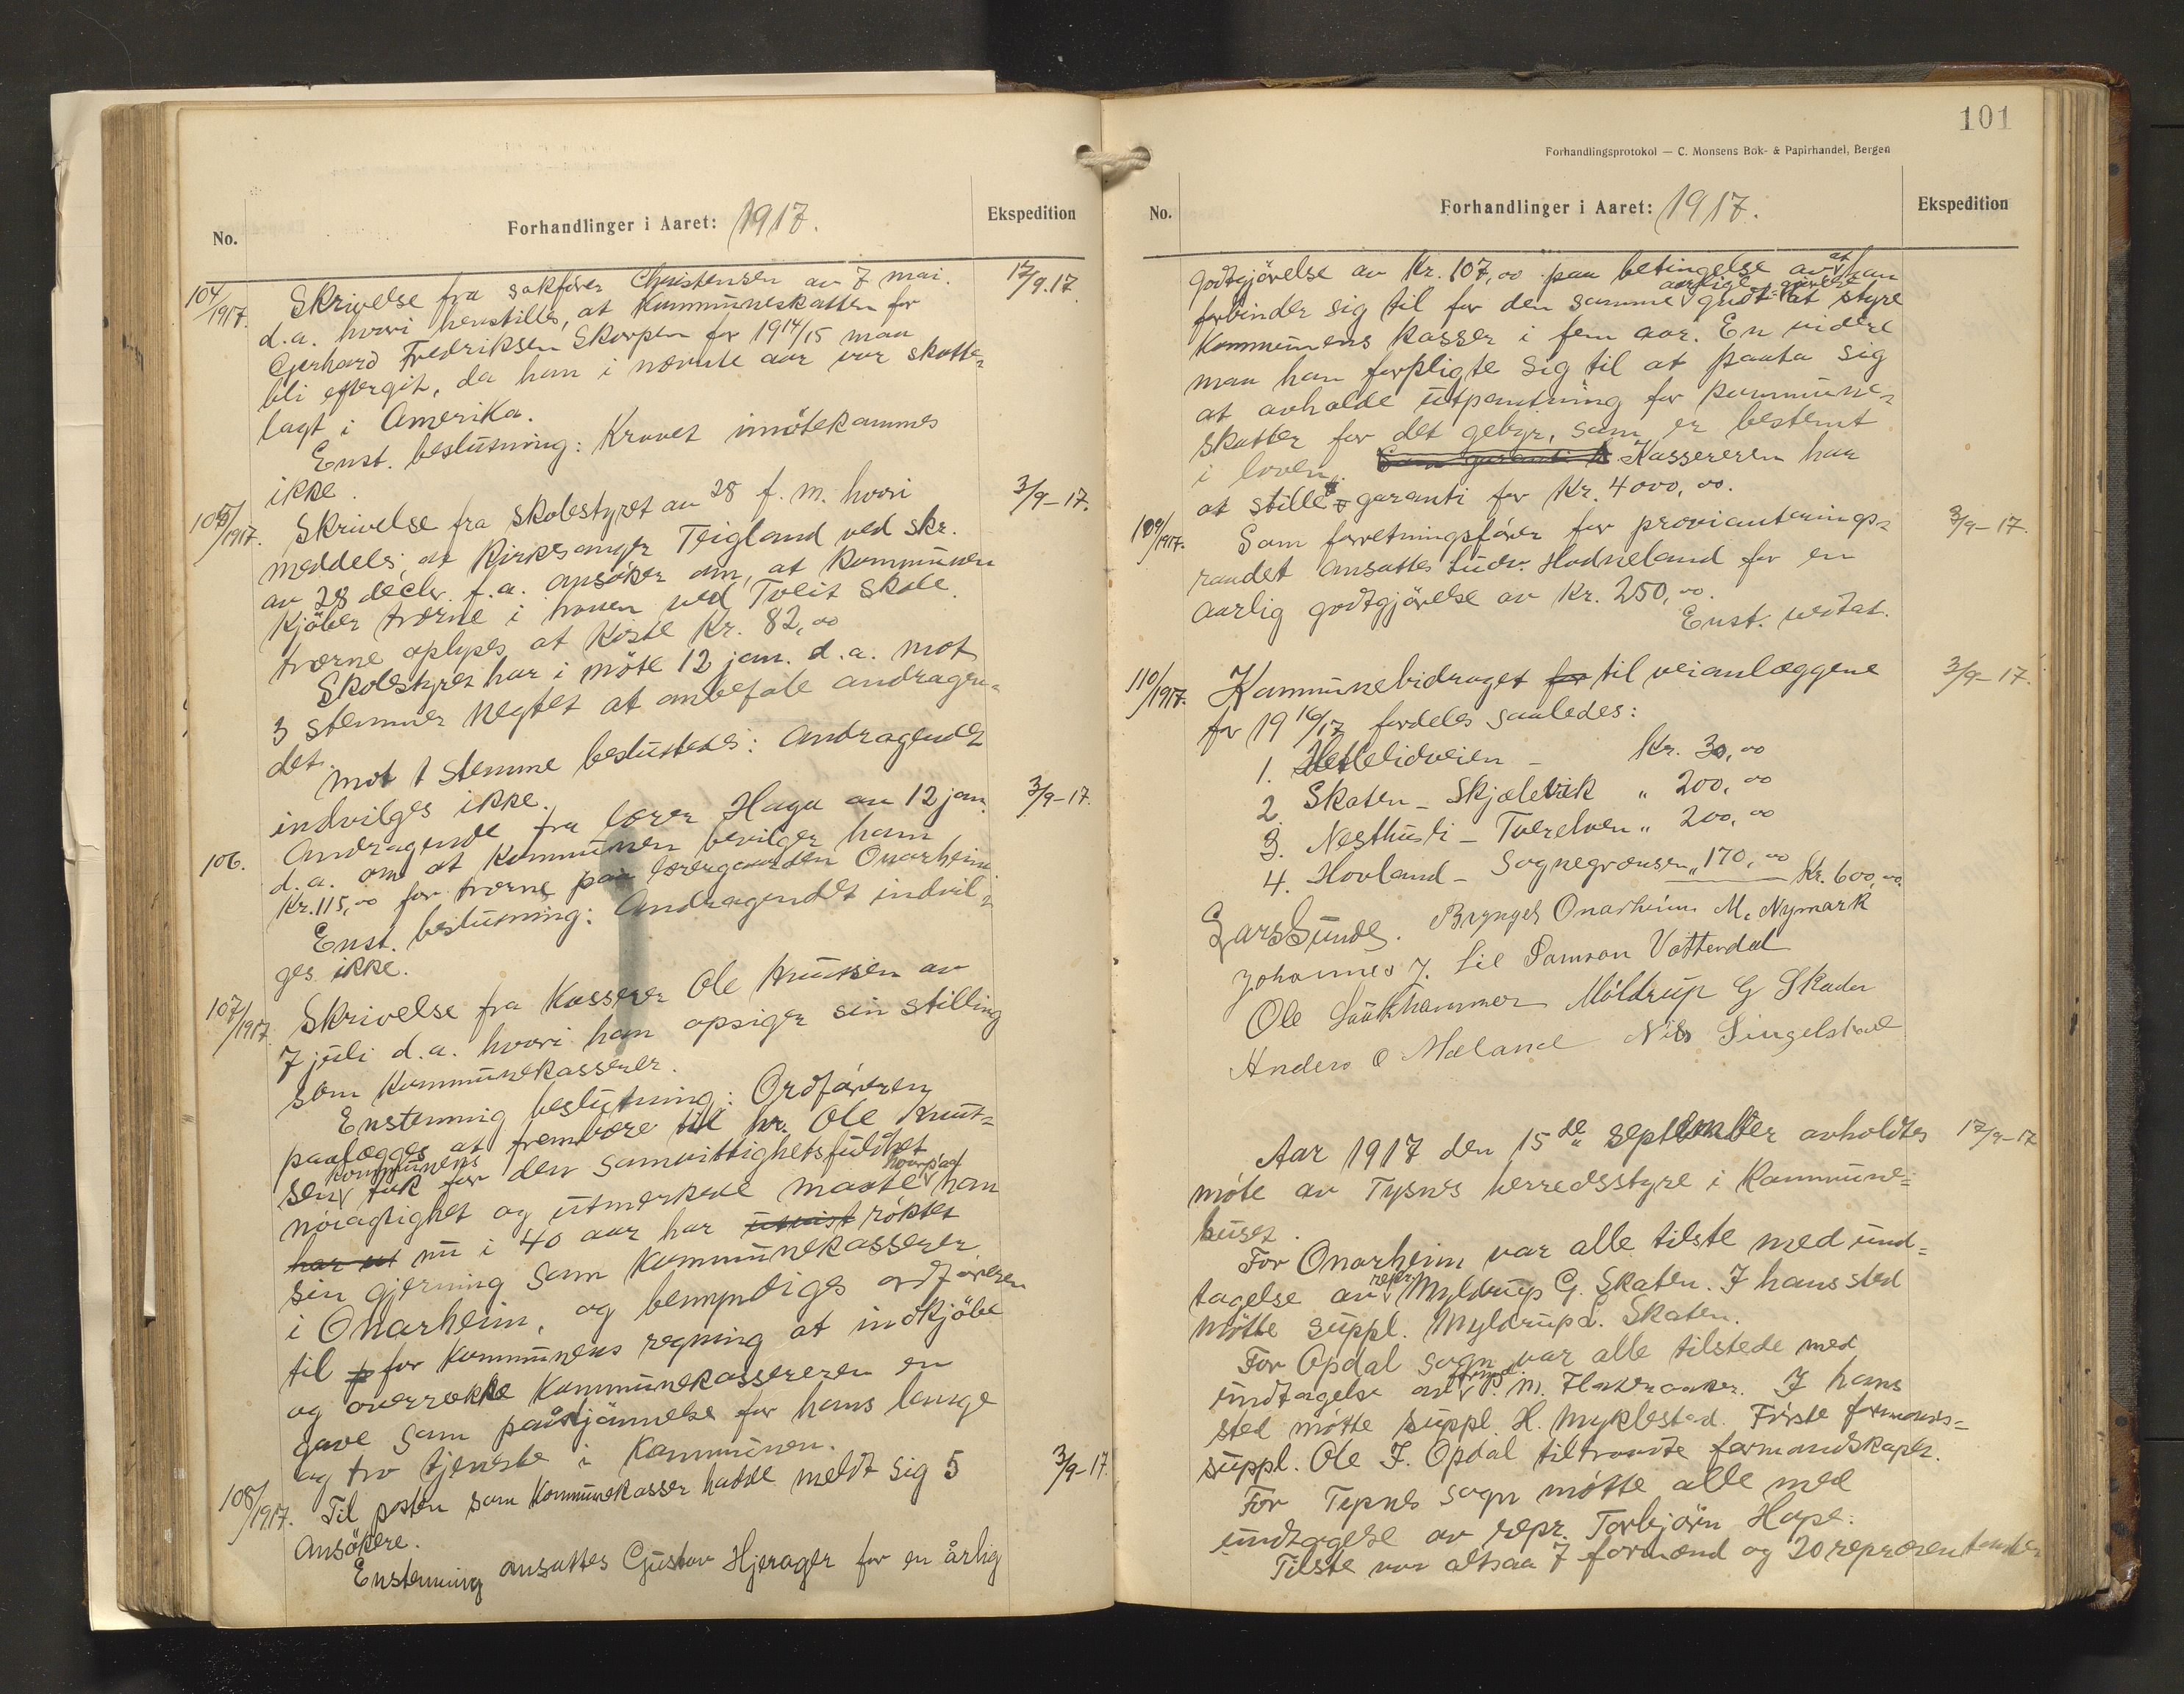 No.
Forhandlinger i Aaret: 1917.
Ekspedition
104/1917.
Skrivelse fra sakfører Christensen av 7 mai
17/9.17.
d.a. hvori henstilles, at Kommuneskatten for
Gerhard Fredriksen Skorpen for 1914/15 maa
bli eftergit, da han i nævnte aar var skatte-
lagt i Amerika.
Enst. beslutning: Kravet imøtekommes
ikke.
105/1917.
Skrivelse fra skolestyret av 28 f.m. hvori
3/9-17.
meddeles, at Kirkesanger Teigland ved skr.
av 28 decbr. f.a. ansøker om, at kommunen
kjøber trærne i haven ved Tveit skole.
trærne oplyses at koste Kr. 82,00
Skolestyret har i møte 12 jan. d.a. mot
3 stemmer negtet at anbefale andragen-
det.
Mot 1 stemme besluttedes: Andragendet
indvilges ikke.
106.
Andragende fra lærer Haga av 12 jan.
3/9-17.
d.a. om at Kommunen bevilger ham
Kr. 115,00 for trærne paa lærergaarden Onarheim.
Enst. beslutning: Andragendet indvil-
ges ikke.
107/1917.
Skrivelse fra Kasserer Ole Knutsen av
7 juli d.a. hvori han opsiger sin stilling
som Kommunekasserer.
Enstemmig beslutning: Ordføreren
paalægges at frembære til hr. Ole Knut-
sen kommunens tak for den samvittighetsfuldhet
nøiagtighet og utmerkede maate hvorpaa han
har nu i 40 aar har utvist røktet
sin gjerning som Kommunekasserer
i Onarheim, og bemyndiges ordføreren
til for kommunens regning at indkjøbe
og overrække Kommunekassereren en
gave som påskjønnelse for hans lange
og tro tjeneste i Kommunen.
108/1917.
Til posten som Kommunekasser hadde meldt sig 5
3/9-17.
Ansøkere.
Enstemmig ansattes Gustav Hjerager for en årlig
101
Forhandlingsprotokol — C. Monsens Bok- & Papirhandel, Bergen
No.
Forhandlinger i Aaret: 1917.
Ekspedition
godtgjørelse av Kr. 107,00 paa betingelse av at han
forbinder sig til for den samme aarlige godtgjørelse at styre
Kommunens kasser i fem aar. En videre
maa han forpligte sig til at paata sig
at avholde utpantning for kommune-
skatter for det gebyr, som er bestemt
i loven. Som garanti Kassereren har
at stille garanti for Kr. 4000,00.
109/1917.
Som forretningsfører for provianterings-
3/9-17.
raadet ansattes Ludv. Hodneland for en
aarlig godtgjørelse av Kr. 250,00.
Enst. vedtat.
110/1917.
Kommunebidraget for til veianlæggene
3/9-17.
for 1916/17 fordeles saaledes:
1. Hetlelidveien - Kr. 30,00
2. Skaten - Skjælevik " 200,00
3. Nesthusli - Tverelven " 200,00
4. Hovland - Sognegrænsen " 170,00 Kr. 600,00.
Lars Sunde. Brynjel Onarheim M. Nymark
Johannes J. Lie Samson Vattendal
Ole Laukhammer Møldrup G Skaten
Anders O Mæland Nils Singelstad
Aar 1917 den 15de september avholdtes
17/9-17
møte av Tysnes herredsstyre i Kommune-
huset.
For Onarheim var alle tilste med und-
tagelse av repr. Myldrup G. Skaten. I hans sted
møtte suppl. Myldrup L. Skaten.
For Opdal sogn var alle tilstede med
undtagelse av M. Flakeraaker. I hans
sted møtte suppl. H. Myklestad. Første formands-
suppl. Ole J. Opdal tiltraadte formandskapet.
For Tysnes sogn møtte alle med
undtagelse av repr. Torbjørn Hope.
Tilste var altsaa 7 formænd og 20 repræsentanter